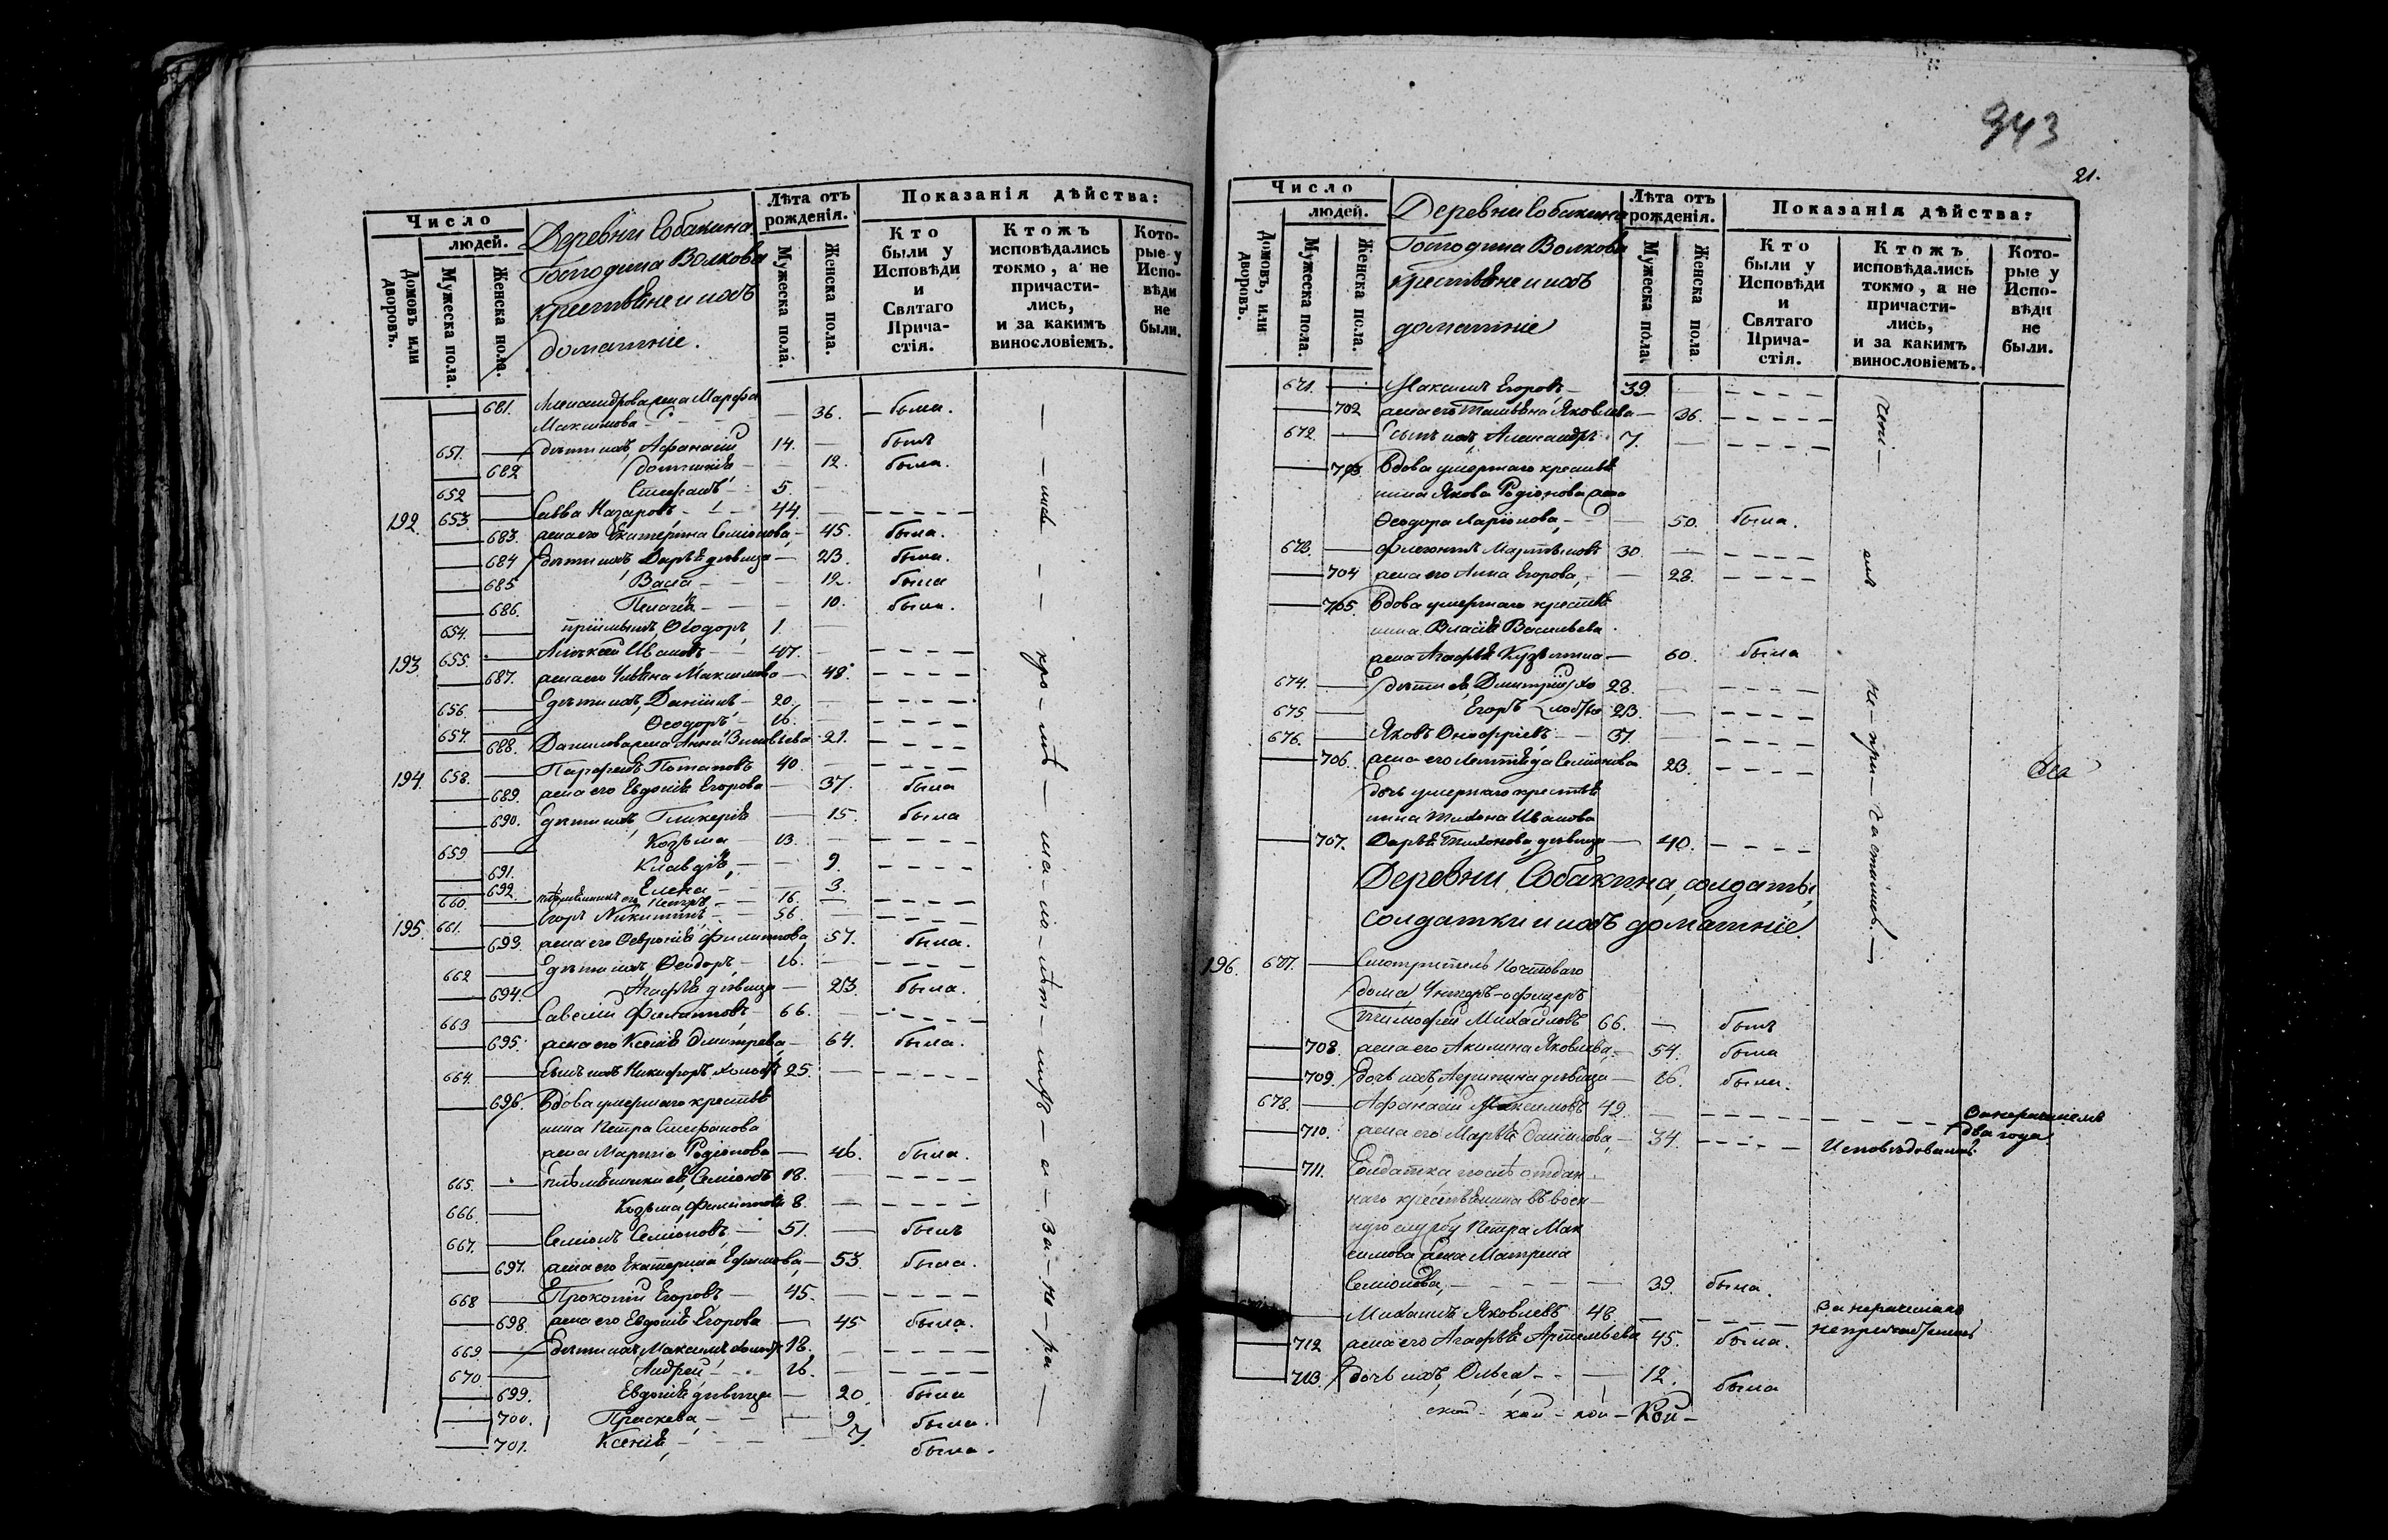 Число
людей.
Домовъ или дворовъ.
Мужеска пола.
Женска пола.
Деревни Собакина
Господина Волкова
крестьяне и ихъ
домашніе.
Лѣта отъ рожденія.
Мужеска пола.
Женска пола.
Показанія дѣйства:
Кто были у Исповѣди и Святаго Прича-стія.
Ктожъ исповѣдались токмо, а не причасти-лись, и за какимъ винословіемъ.
Кото-рые у Испо-вѣди не были.
681. Александрова жена Марѳа
Максимова 36. была.
651. дѣти ихъ, Афанасій 14. былъ
682 12. была.
652 Стефанъ 5.
192 653. Савва Назаровъ 44.
683. жена его Екатерина Семіонова, 45. была.
684 дѣти ихъ, Дарья дѣвица 23. была.
685 Васса 12. была
686. Пелагія 10. была.
654. пріимышъ, Ѳеодоръ, 1.
193 655. Алексѣй Ивановъ 47.
687. жена его Ульяна Максимова 48.
656. дѣти ихъ, Даніилъ 20.
657. Ѳеодоръ 16.
688. Данилова жена Анна 21.
194. 658. Парфенъ Потаповъ 40.
689. жена его Евдокія Егорова 37. была
690. дѣти ихъ, Гликерія 15. была
659. Козьма 13.
691. Клавдія, 9.
692. Елена 3.
660. племянникъ его Петръ 16.
195. 661. Егоръ Никитинъ 56.
693. жена его Ѳевронія Филиппова, 57. была.
662 дѣти ихъ Ѳеодоръ 16.
694. Агафья дѣвица 23. была.
663 Савелій Филипповъ 66.
695. жена его Ксенія Дмитрева, 64. была.
664. сынъ ихъ Никифоръ, холостъ 25.
696. Вдова умершаго крестья
нина Петра Стефанова
жена Марѳа Родіонова 46. была.
665. племянники ея, Семіонъ 18.
666. Козьма Филиппова 8.
667. Семіонъ Семіоновъ 51. былъ
697. жена его Екатерина Ефимова, 53. была.
668 Прокопій Егоровъ 45.
698. жена его Евдокія Егорова 45 была.
669. дѣти ихъ Максимъ холостъ 18.
670 Андрей 16.
699. Евдокія дѣвица 20 была
700. Праскева 9 была.
701. Ксенія, 7. была.
943
21.
Число
людей.
Домовъ, или дворовъ.
Мужеска пола.
Женска пола.
Деревни Собакина
Господина Волкова
крестьяне и ихъ
домашніе
Лѣта отъ рожденія.
Мужеска пола
Женска пола
Показанія дѣйства:
Кто были у Исповѣди и Святаго Прича-стія.
Ктожъ исповѣдались токмо, а не причасти-лись, и за какимъ винословіемъ.
Кото-рые у Испо-вѣди не были.
671. Максимъ Егоровъ 39.
702 жена его Татьяна Яковлева 36.
672. Сынъ ихъ, Александръ 7.
703. Вдова умершаго крестья
нина Якова Родіонова жена
Ѳеодора Ларіонова, 50. была.
673. Филиппъ Мартыновъ 30.
704 жена его Анна Егорова, 28.
705. Вдова умершаго крестья
нина Власія Васильева
жена Агафья Кузьмина 60. была
674. дѣти ея, Димитрій хо 28.
675 Егоръ лостые 23.
676. Яковъ Онофріевъ 37.
706. жена его Семіонова 23.
дочь умершаго крестья
нина Тихона Иванова
707. Дарья Тихонова, дѣвица 40.
Деревни Собакина, солдаты,
солдатки и ихъ домашніе.
196. 677. Смотритель Почтоваго
дома, Унтеръ-офицеръ
Тимофей Михайловъ 66. былъ
708. жена его Акилина Яковлева, 54. была
709. дочь ихъ, Агрипина дѣвица 16. была.
678. Афанасій Максимовъ 49. За нераченіемъ
два года
710. жена его Марья Даніилова, 34. Исповѣдовались.
711. Солдатка, послѣ отдан
наго крестьянина въ воен
ную службу Петра Мак
симова жена Матрена
Семіонова, 39. была.
Михаилъ Яковлевъ 48. За нераченіемъ
712 жена его Агафья Артемьева 45. была.
713. дочь ихъ, Ольга 12. была